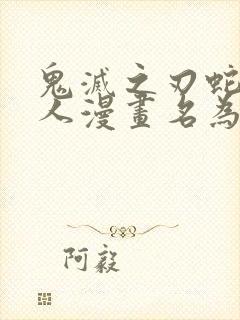 鬼滅之刃蛇
人漫畫名為
阿毅